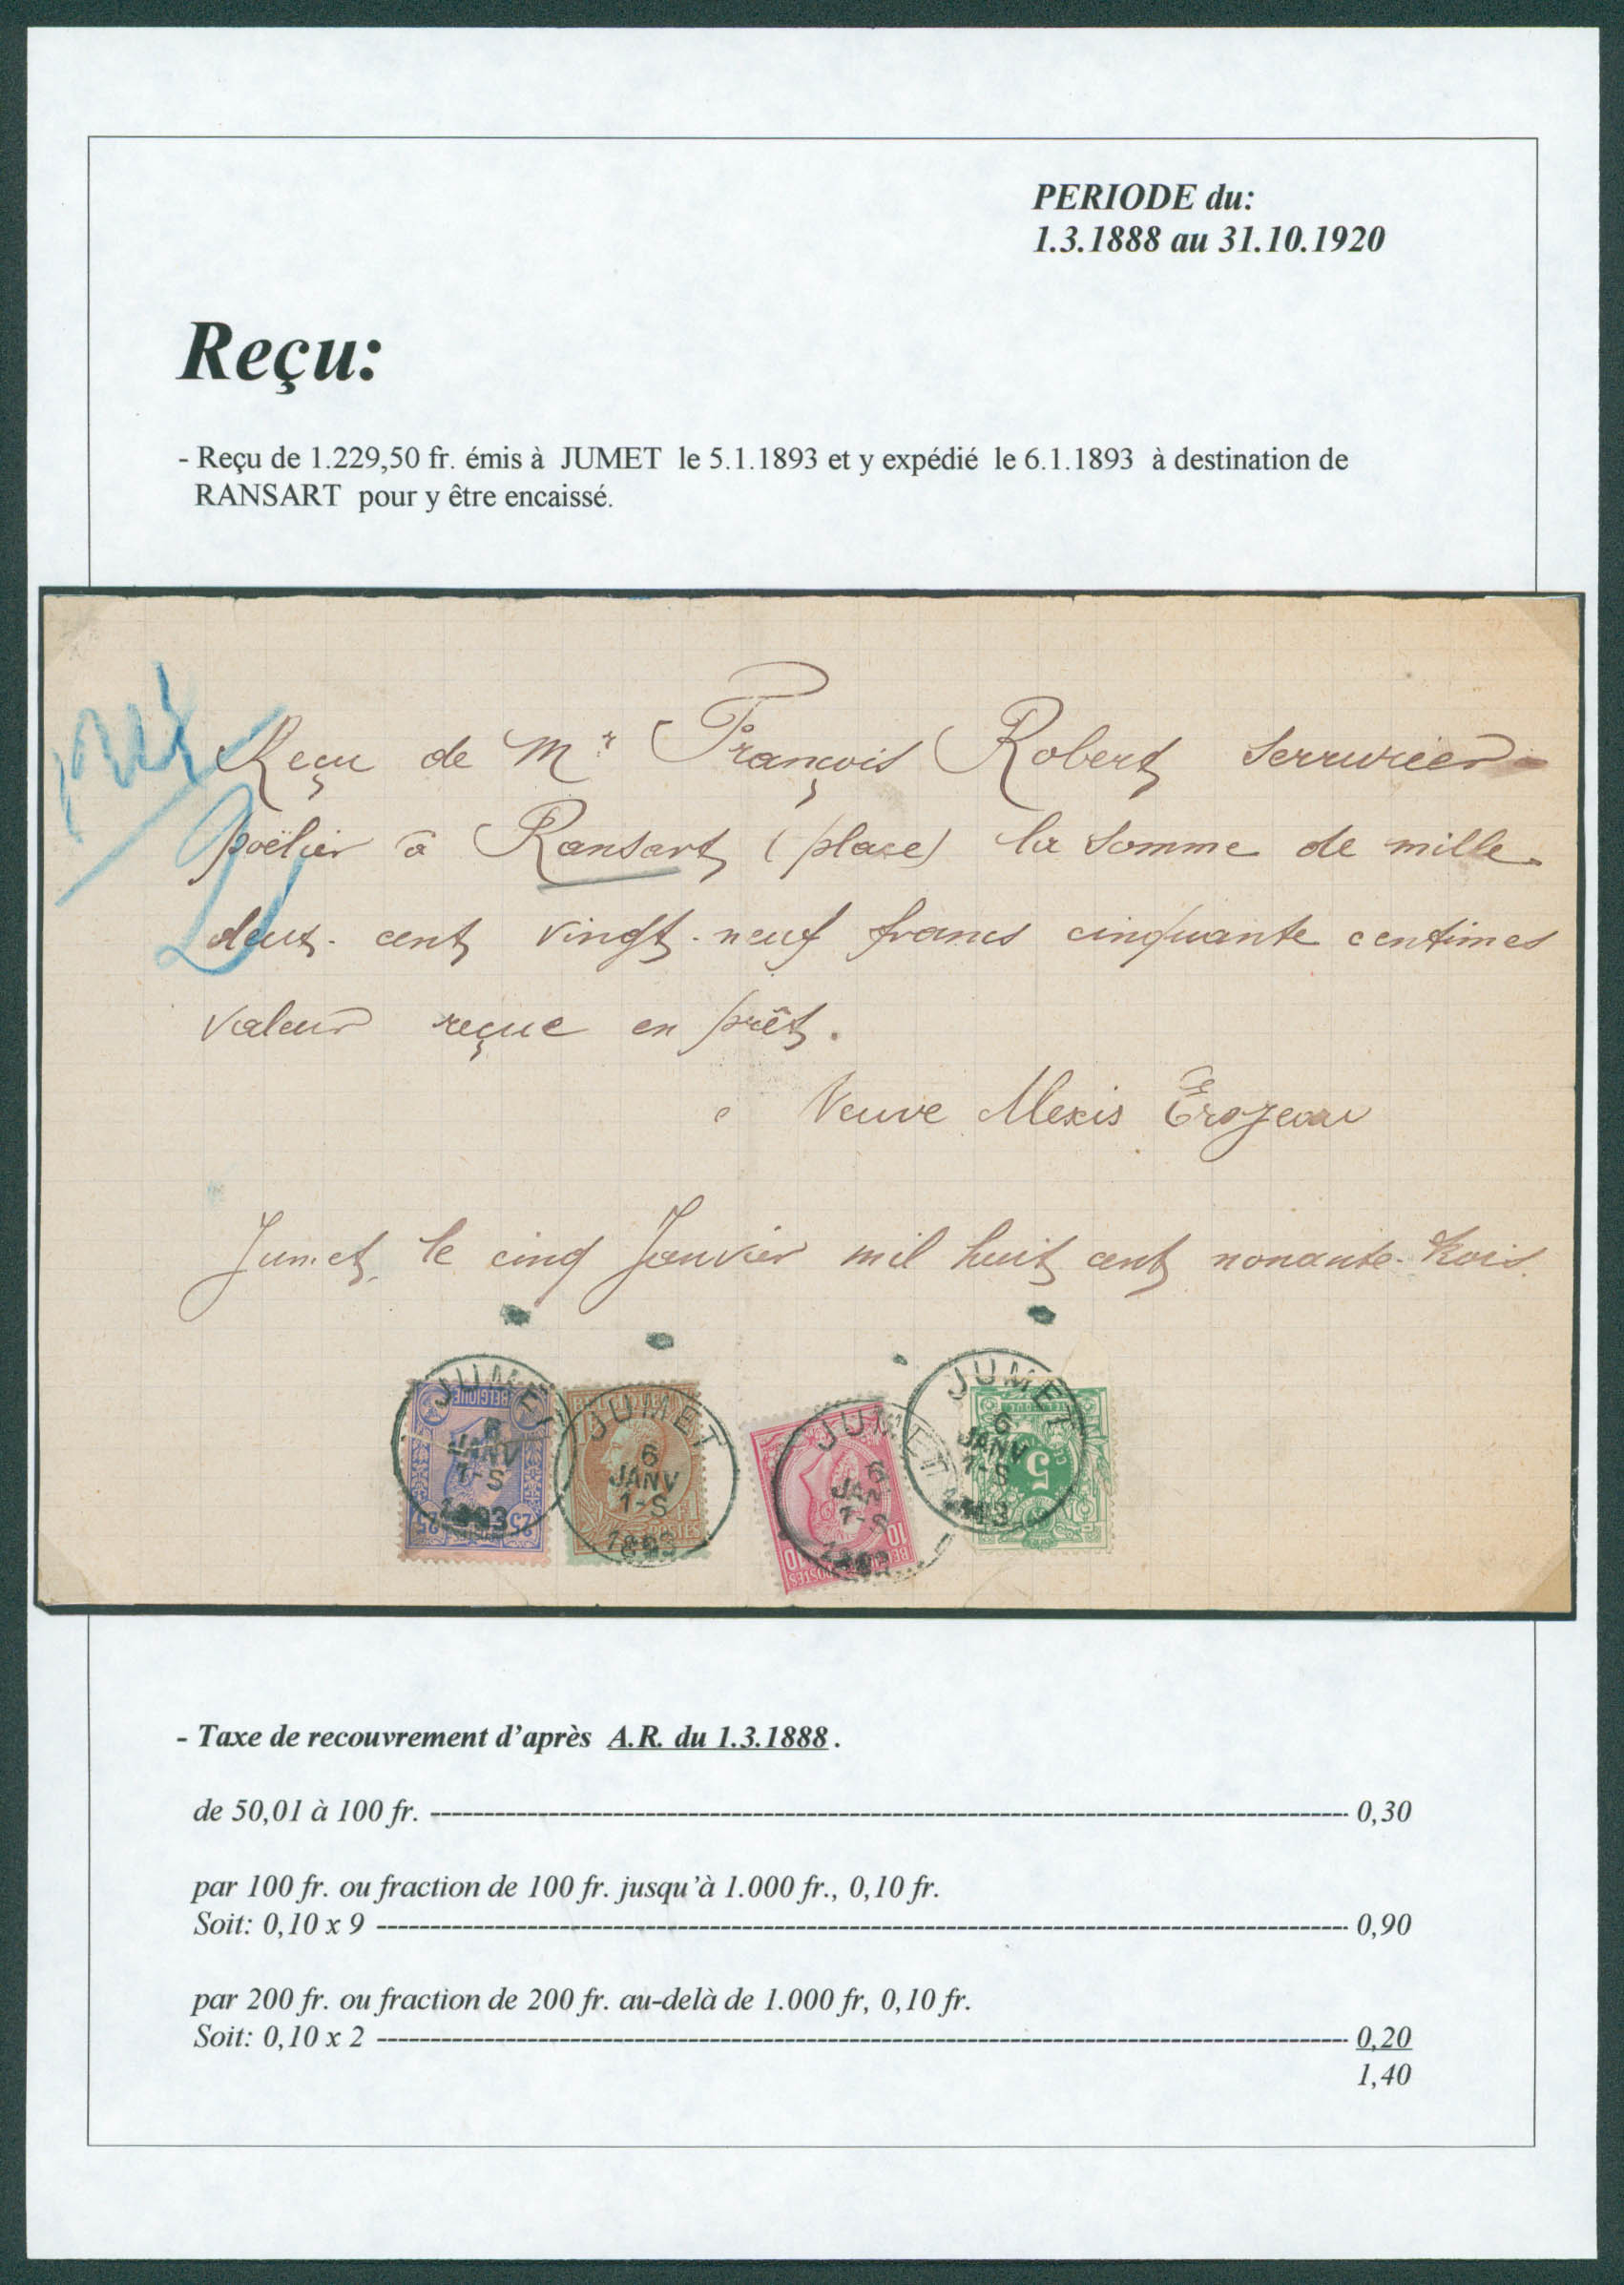 PERIODE du:
1.3.1888 au 31.10.1920
Reçu:
- Reçu de 1.229,50 fr. émis à JUMET le 5.1.1893 et y expédié le 6.1.1893 à destination de
RANSART pour y être encaissé.
Reçu de Mr François Robert Serrurier
poëlier à Ransart (place) la somme de mille
deux. cent vingt-neuf francs cinquante centimes
valeur reçue en prêt.
Veuve Alexis
Jumet, le cinq Janvier mil huit cent nonante-trois.
JUMET
6
JANV
1-S
1893
BELGIQUE
25
25
JUMET
6
JANV
1-S
1893
POSTES
JUMET
6
JAN
1-S
1893
10
10
POSTES
JUMET
6
JANV
1-S
1893
5
- Taxe de recouvrement d'après A.R. du 1.3.1888.
de 50,01 à 100 fr. 0,30
par 100 fr. ou fraction de 100 fr. jusqu'à 1.000 fr., 0,10 fr.
Soit: 0,10 x 9 0,90
par 200 fr. ou fraction de 200 fr. au-delà de 1.000 fr, 0,10 fr.
Soit: 0,10 x 2 0,20
1,40